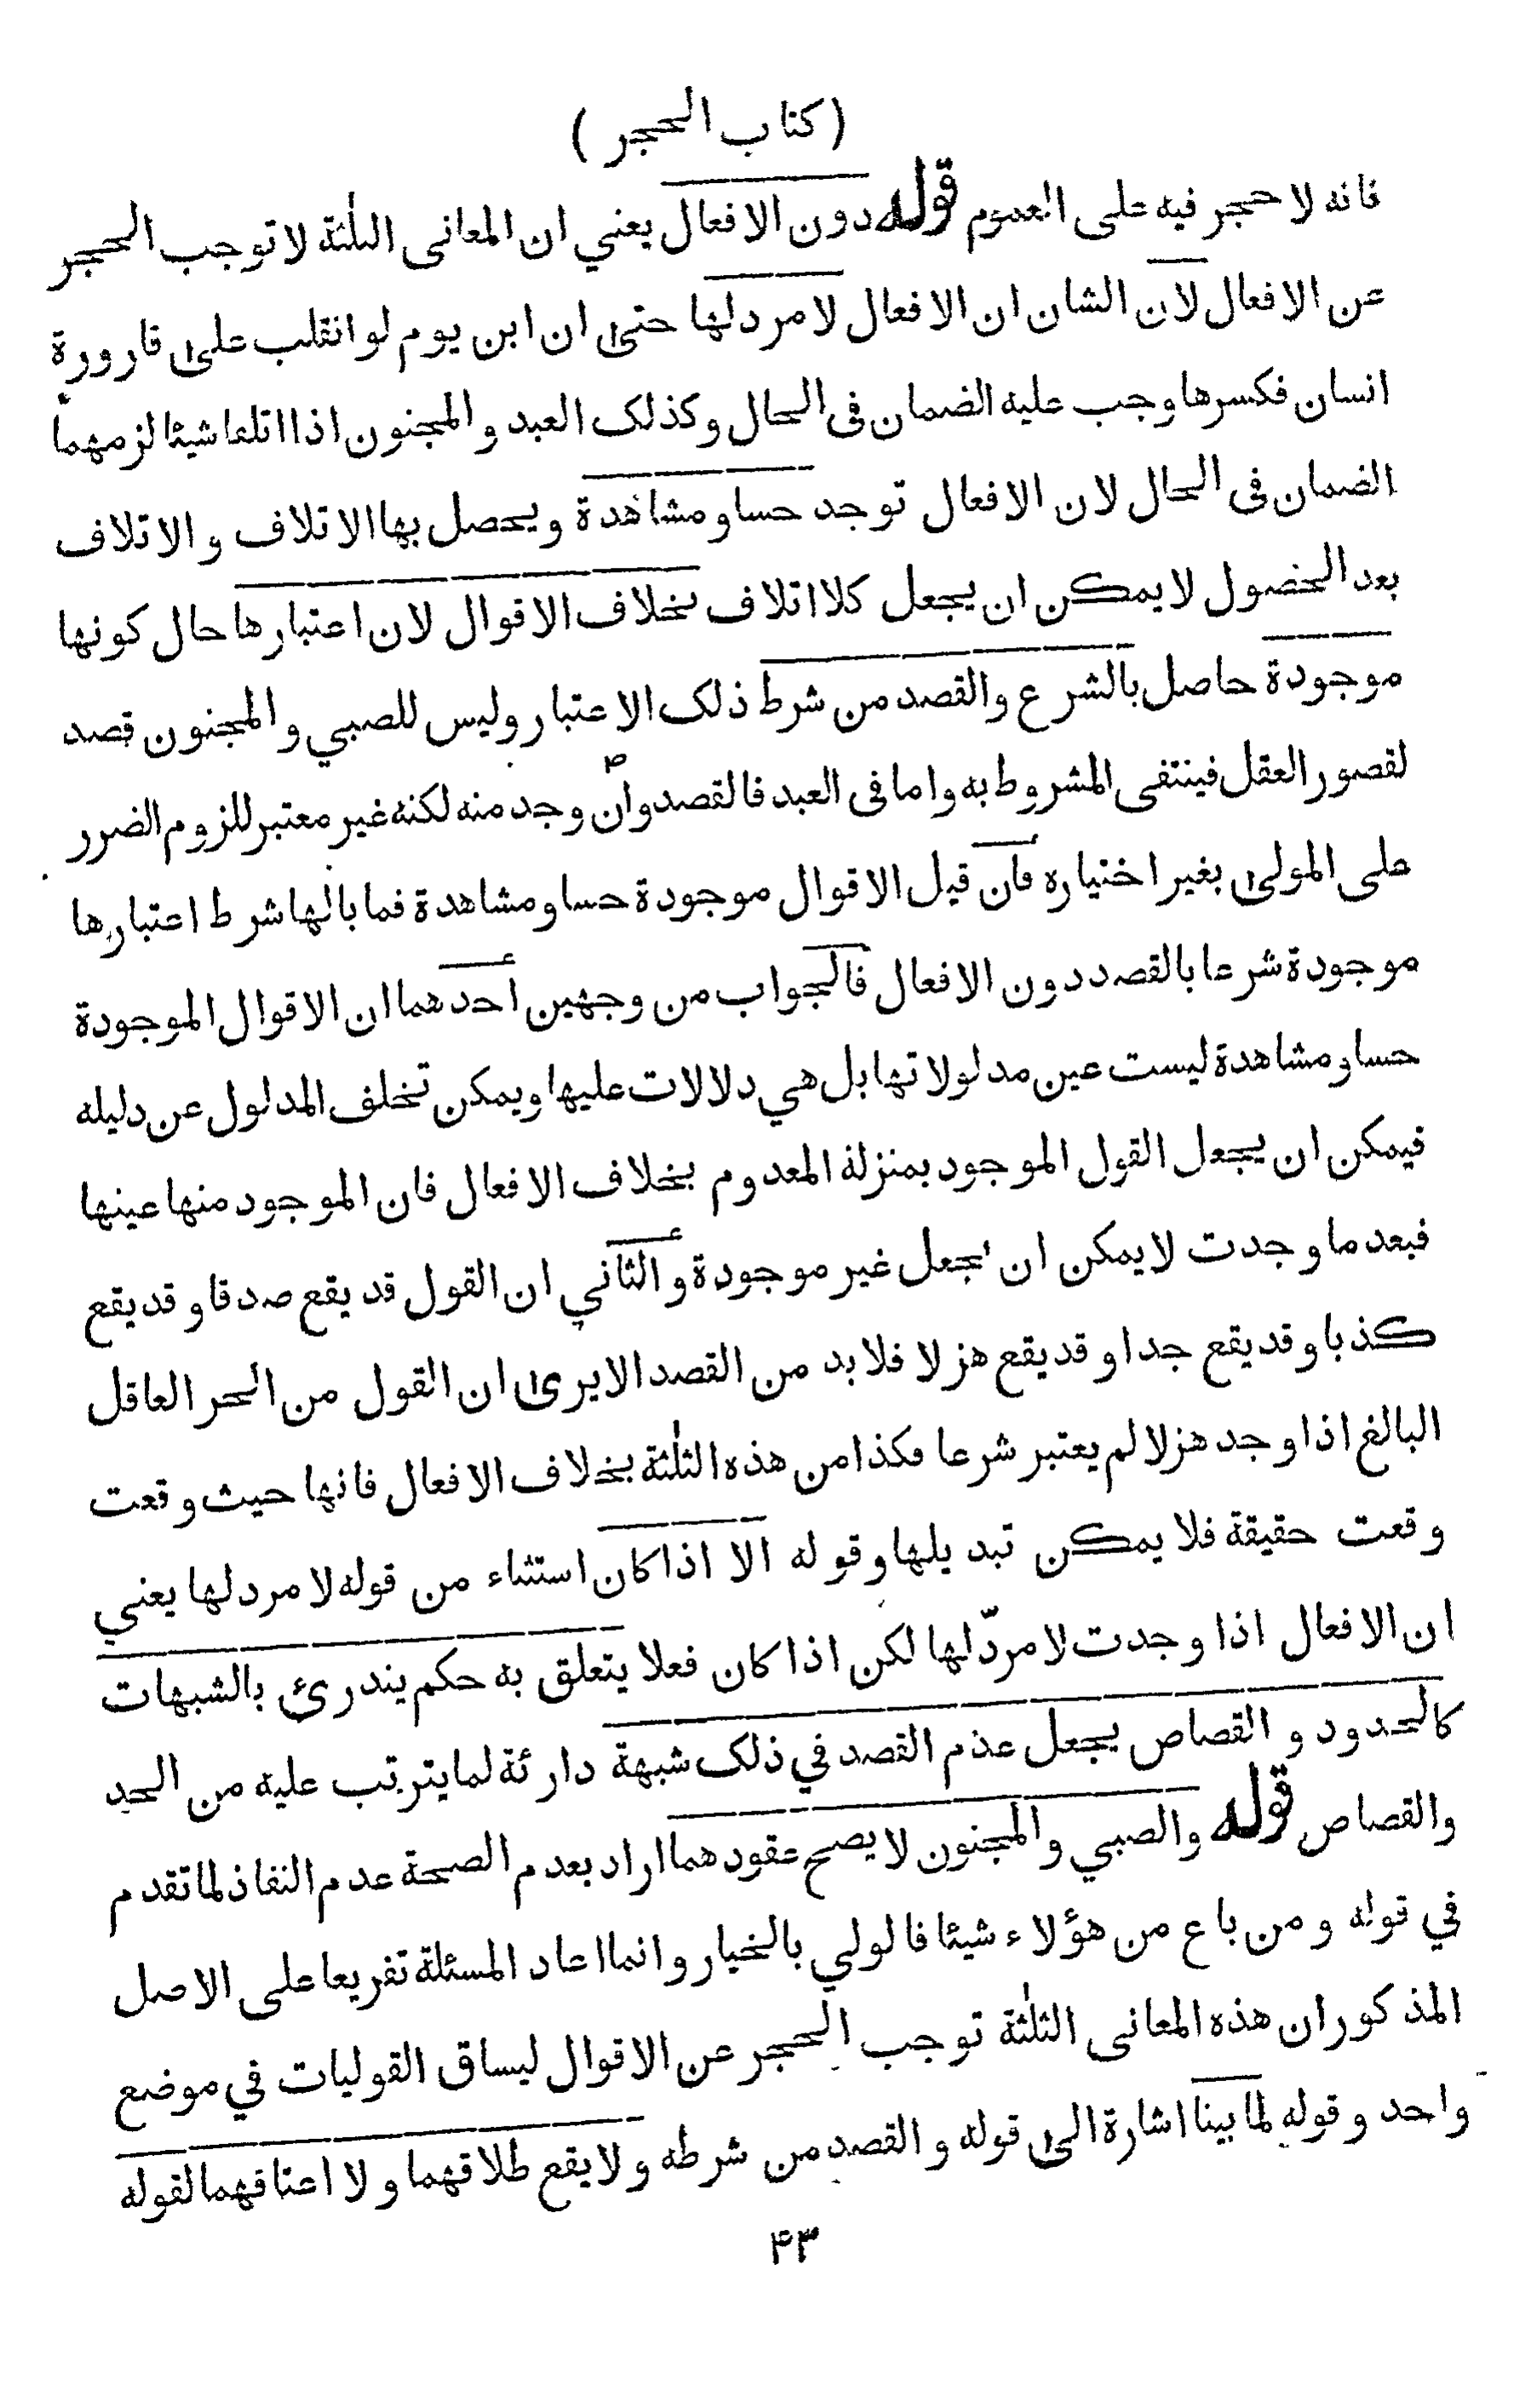 ( كتاب الحجر )
فانه لا حجر فيه على العموم قوله دون الافعال يعني ان المعانى الثلٰثة لا توجب الحجر
عن الافعال لان الشان ان الافعال لا مرد لها حتىٰ ان ابن يوم لو انقلب علىٰ قارورة
انسان فكسرها وجب عليه الضمان فى الحال وكذلك العبد و المجنون اذا اتلفا شيئا لزمهما
الضمان فى الحال لان الافعال توجد حسا و مشاهدة و يحصل بها الاتلاف و الاتلاف
بعد الحضول لا يمكن ان يجعل كلا اتلاف بخلاف الاقوال لان اعتبارها حال كونها
موجودة حاصل بالشرع والقصد من شرط ذلك الاعتبار وليس للصبي و المجنون قصد
لقصور العقل فينتفى المشروط به واما فى العبد فالقصد وان وجد منه لكنه غير معتبر للزوم الضرر
على المولىٰ بغير اختياره فان قيل الاقوال موجودة حسا و مشاهدة فما بالها شرط اعتبارها
موجودة شرعا بالقصد دون الافعال فالجواب من وجهين أحدهما ان الاقوال الموجودة
حسا و مشاهدة ليست عين مدلولاتها بل هي دلالات عليها ويمكن تخلف المدلول عن دليله
فيمكن ان يجعل القول الموجود بمنزلة المعدوم بخلاف الافعال فان الموجود منها عينها
فبعد ما وجدت لا يمكن ان يجعل غير موجودة و الثاني ان القول قد يقع صدقا و قد يقع
كذبا و قد يقع جدا و قد يقع هزلا فلا بد من القصد الا يرىٰ ان القول من الحر العاقل
البالغ اذا وجد هزلا لم يعتبر شرعا فكذا من هذه الثلٰثة بخلاف الافعال فانها حيث وقعت
وقعت حقيقة فلا يمكن تبديلها و قوله الا اذا كان استثناء من قوله لا مرد لها يعني
ان الافعال اذا وجدت لا مردّ لها لكن اذا كان فعلا يتعلق به حكم يندرئ بالشبهات
كالحدود و القصاص يجعل عدم القصد في ذلك شبهة دارئة لما يترتب عليه من الحد
والقصاص قوله والصبي و المجنون لا يصح عقودهما اراد بعدم الصحة عدم النفاذ لما تقدم
في قوله و من باع من هؤلاء شيئا فالولي بالخيار و انما اعاد المسئلة تفريعا على الاصل
المذكور ان هذه المعانى الثلٰثة توجب الحجر عن الاقوال ليساق القوليات في موضع
واحد و قوله لما بينا اشارة الىٰ قوله و القصد من شرطه و لا يقع طلاقهما و لا اعتاقهما لقوله
۴۳